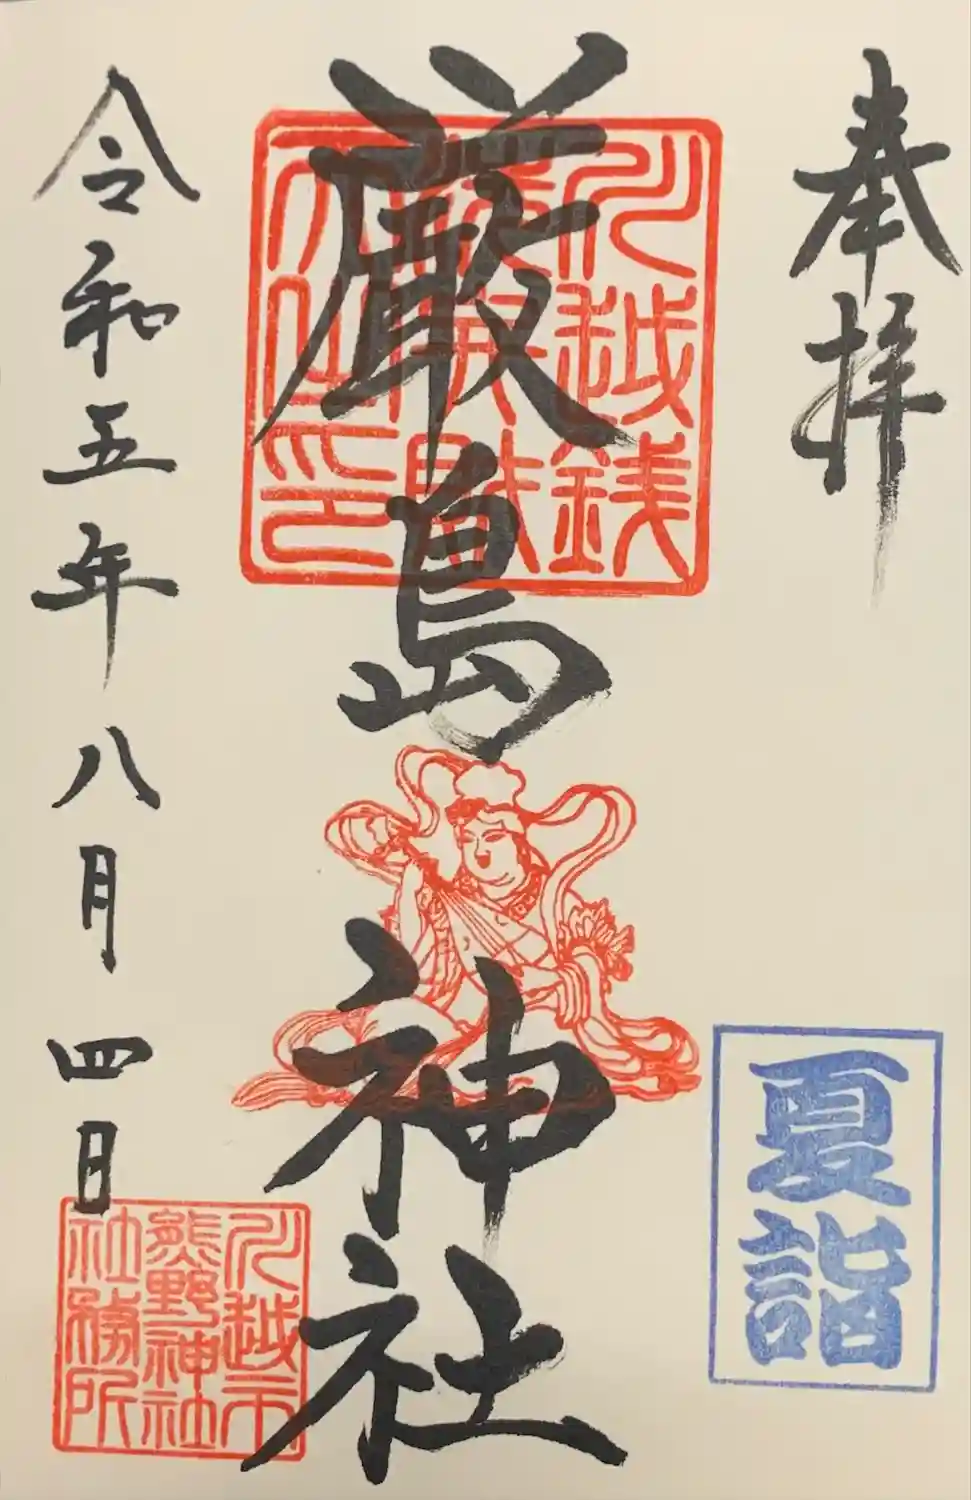 奉拝
夏詣
厳島神社
川越銭
令和五年八月四日
川越市
熊野神社
社務所